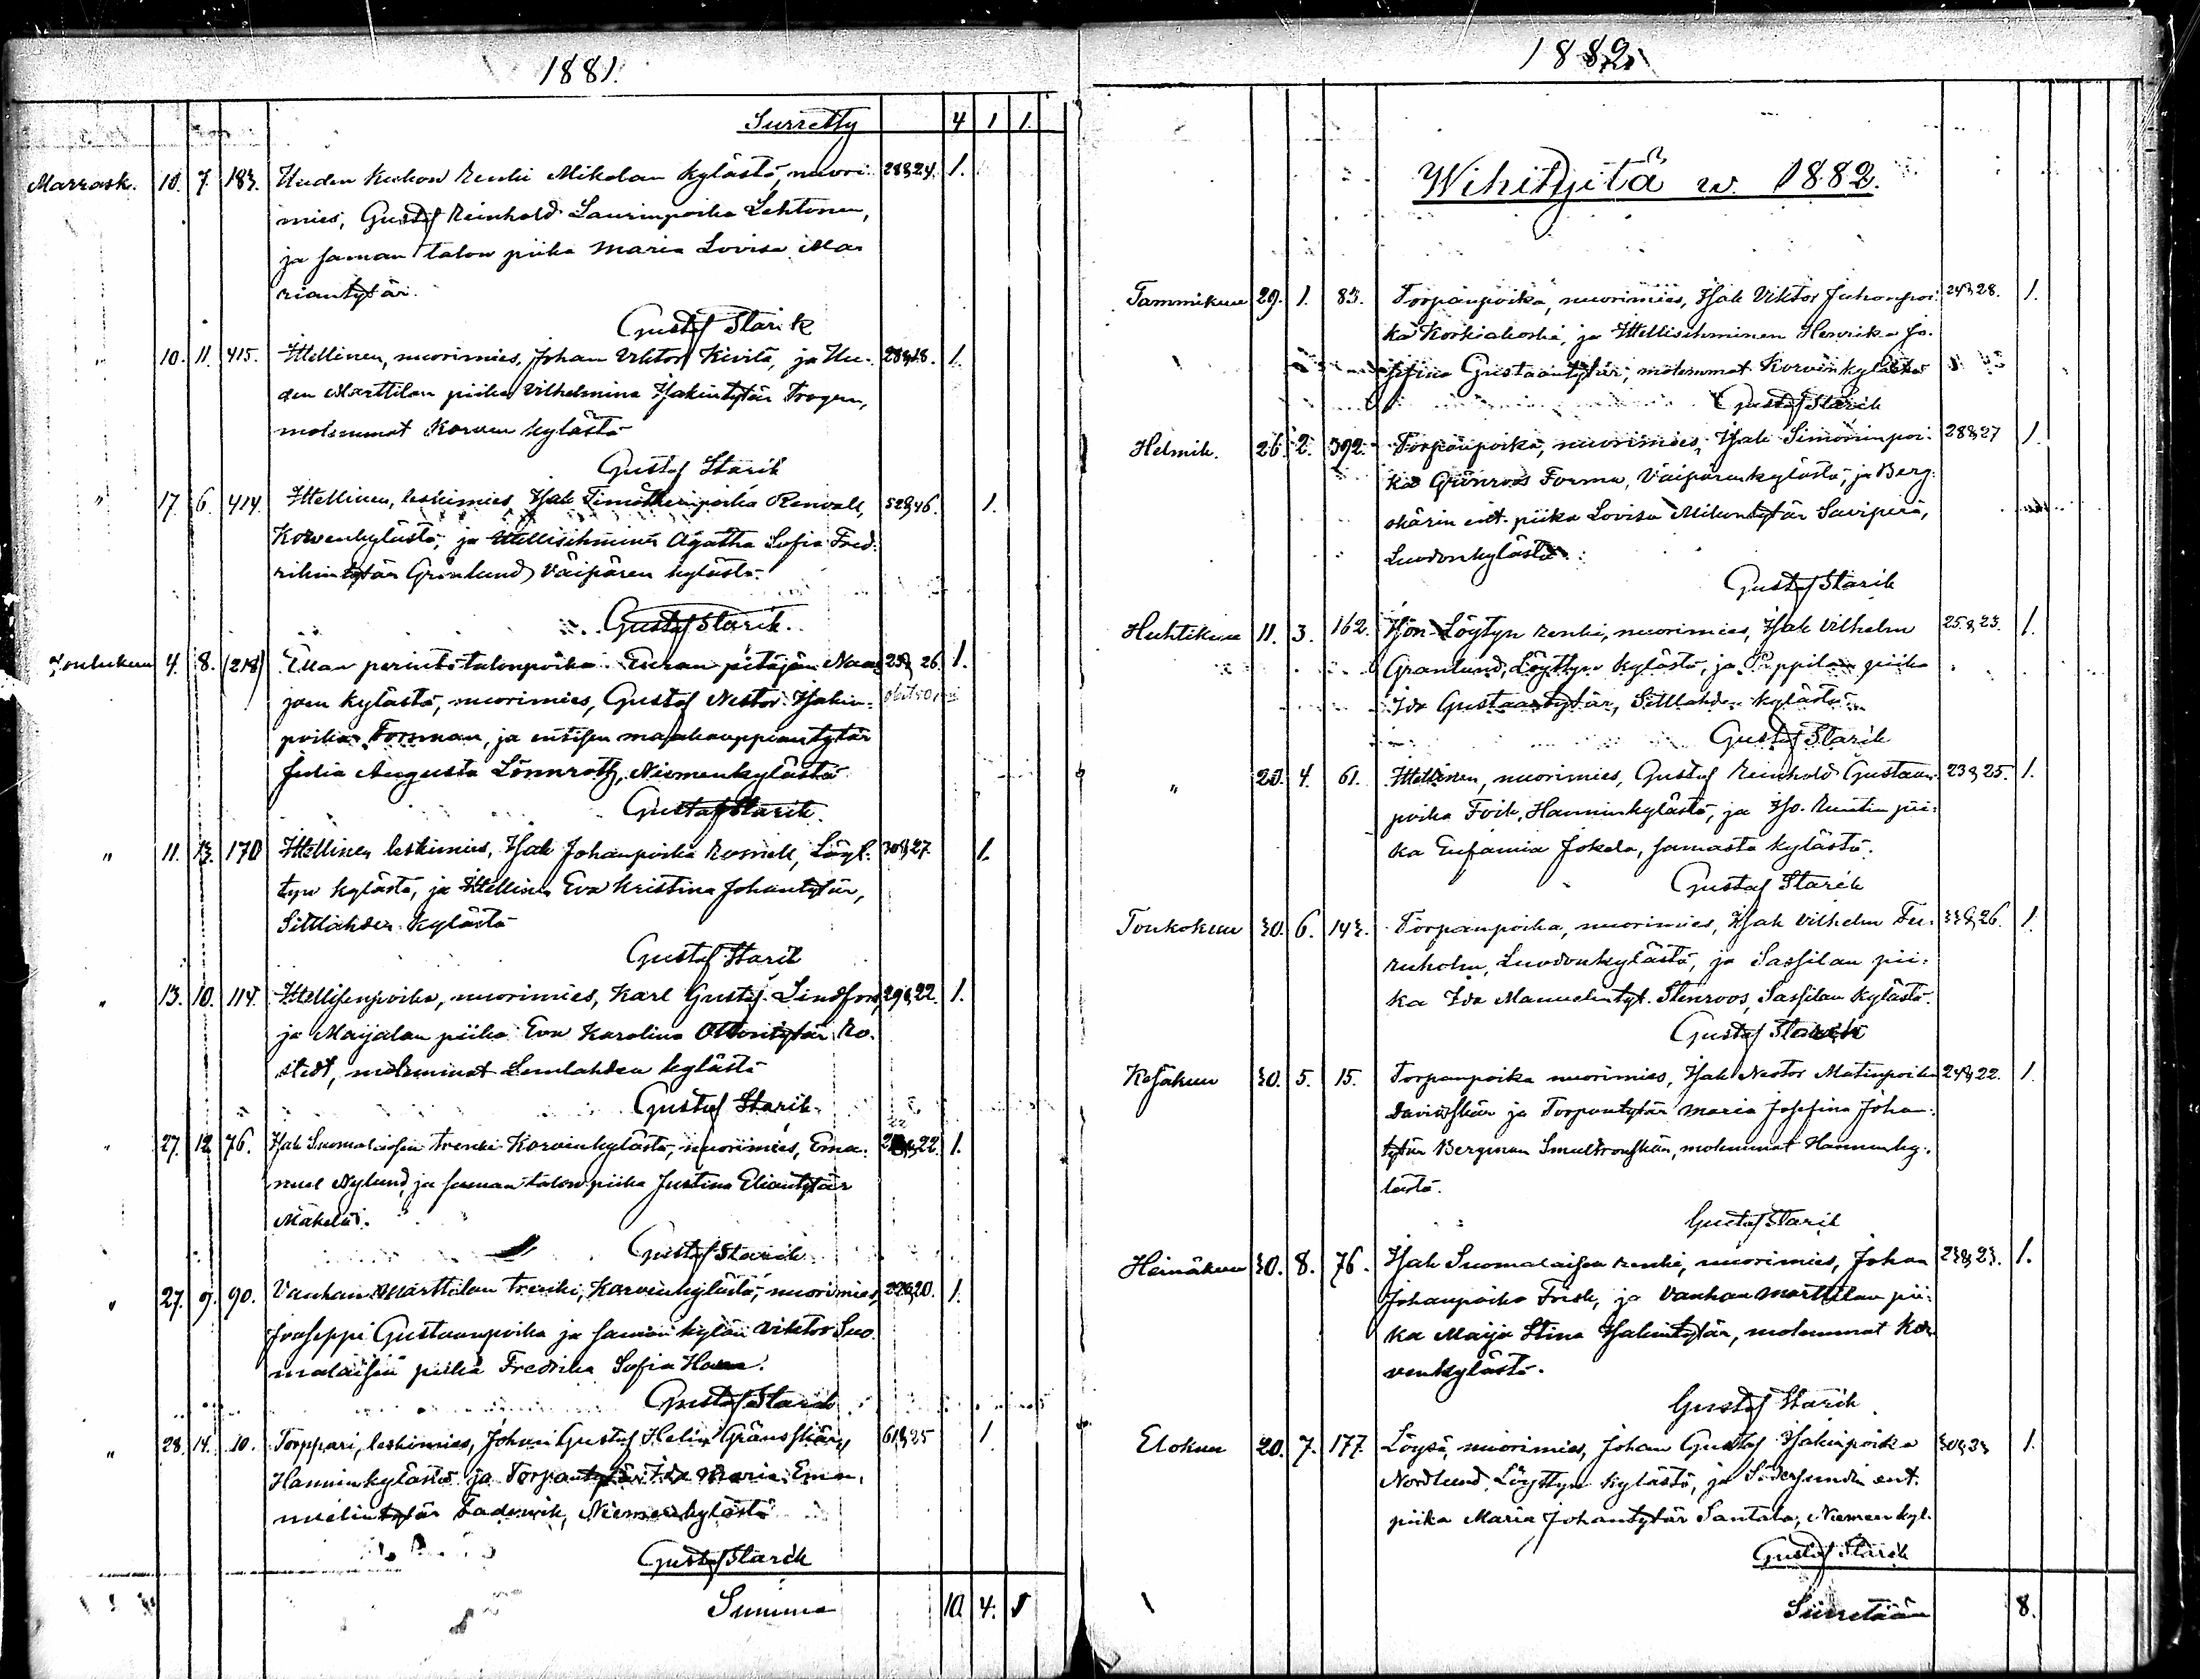 1881.
Siirretty 4 1 1.
Marrask. 10. 7. 183. Uuden Kukon Renki Mikolan kylästä, nuori- 28&24. 1.
mies, Gustaf Reinhold Laurinpoika Lehtonen,
ja saman talon piika Maria Lovisa Ma
riantytär.
Gustaf Starik
" 10. 11. 415. Itellinen, nuorimies, Johan Viktor Kivitä, ja Uu- 1.
den Marttilan piika Vilhelmina Isakintytär Trogen,
molemmat Korven kylästä
Gustaf Starik
" 17. 6. 414. Itellinen, leskimies, Isak Timotheinpoika Renvall, 52&46. 1.
Korvenkylästä, ja Itellisihminen Agatha Sofia Fred-
rikin tytär Grönlund Vaipären kylästä.
Gustaf Starik.
Joulukuu 4. 8. (218) perintötalonpoika Euran pitäjän 26. 1.
joen kylästä, nuorimies, Gustaf Nestor Isakin-
poika Forsman, ja entisen maakauppiantytär
Julia Augusta Lönnroth, Niemenkylästä
Gustaf Starik.
" 11. 13. 170 Itellinen leskimies, Isak Johanpoika Rosnell, Löyt- 30&27. 1.
tyn kylästä, ja Itellinen Eva Kristina Johantytär,
Sittlahden kylästä
Gustaf Starik
" 13. 10. 114. Itellisenpoika, nuorimies, Karl Gustaf Lindfors, 29&22. 1.
ja Maijalan piika Eva Karolina Ottontytär Ro-
stedt, molemmat Lemlahden kylästä
Gustaf Starik.
" 27. 12. 76. Isak Suomalaisen trenki Korvenkylästä, nuorimies, Ema- 22. 1.
nuel Nylund, ja saman talon piika Justina Eliantytär
Mäkelä.
Gustaf Starik
" 27. 9. 90. Vanhan Marttilan trenki, Korvenkylästä, nuorimies, 22&20. 1.
Jooseppi Gustaanpoika ja saman kylän Viktor Suo
malaisen piika Fredrika Sofia
Gustaf Starik
" 28. 14. 10. Torppari, leskimies, Johan Gustaf Helin Gränsskär, 61&25 1
Hanninkylästä ja Torpantytär Ida Maria Ema-
nuelintytär Niemenkylästä
Gustaf Starik
Summa 10 4. 1
1882.
Wihityitä w. 1882.
Tammikuu 29. 1. 83. Torpanpoika, nuorimies, Isak Viktor Juhanpoi- 24&28. 1.
ka Korkiakoski, ja Itellisihminen Henrika Jo-
sefina Gustaantytär, molemmat Korvenkylästä
Gustaf Starik
Helmik. 26. 2. 392. Torpanpoika, nuorimies, Isak Simoninpoi- 28&27 1.
ka Grönroos Forma, Vaipärenkylästä, ja Berg-
skärin ent. piika Lovisa Mikontytär Savipera,
Luodonkylästä.
Gustaf Starik
Huhtikuu 11. 3. 162. Löytyn Renki, nuorimies, Isak Vilhelm 25&23. 1.
Granlund, Löyttyn kylästä, ja Pappilan piika
Ida Gustaantytär, Sittlahden kylästä
Gustaf Starik
" 20. 4. 61. Itellinen, nuorimies, Gustaf Reinhold Gustaan- 23&25. 1.
poika Foik, Hanninkylästä, ja Iso Kuutin pii-
ka Eufamia Jokela, samasta kylästä.
Gustaf Starik
Toukokuu 30. 6. 143. Torpanpoika, nuorimies, Isak Vilhelm Fu- 33&26. 1.
ruholm, Luodonkylästä, ja Sassilan pii-
ka Ida Manuelintyt. Stenroos, Sassilan kylästä.
Gustaf Starik
Kesäkuu 30. 5. 15. Torpanpoika nuorimies, Isak Nestor Matinpoika 24&22. 1.
Davidsskär ja Torpantytär Maria Josefina Johan-
tytär Bergman Smultronskär, molemmat Hanninky-
lästä.
Gustaf Starik
Heinäkuu 30. 8. 76. Isak Suomalaisen renki, nuorimies, Johan 23&23. 1.
Johanpoika Frisk, ja Vanhan Marttilan pii-
ka Maija Stina Isakintytär, molemmat Kor-
venkylästä.
Gustaf Starik
Elokuu 20. 7. 177. Löysä, nuorimies, Johan Gustaf Isakinpoika 30&23 1.
Nordlund, Löyttyn kylästä, ja Södersundin ent.
piika Maria Johantytär Santala, Niemenkyl.
Gustaf Starik
Siirretään 8.